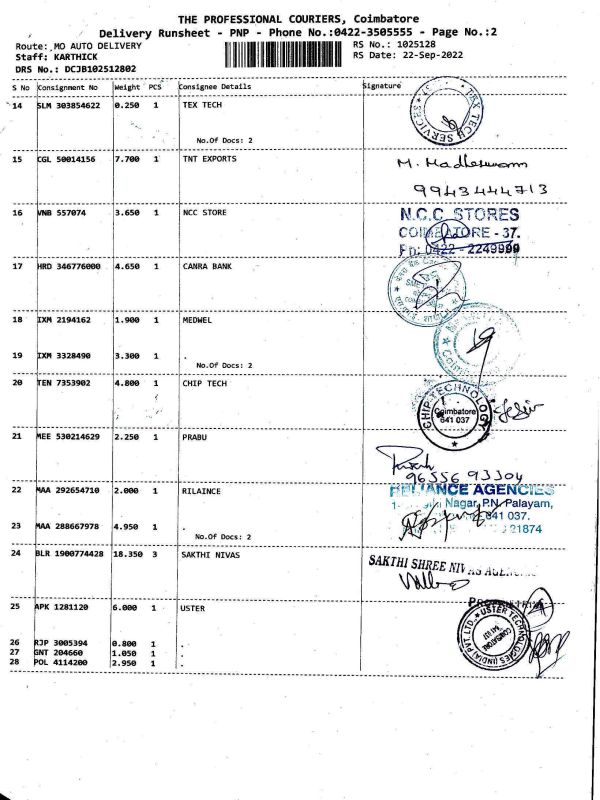 THE PROFESSIONAL COURIERS, Coimbatore
Delivery Runsheet - PNP - Phone No.:0422-3505555 - Page No.:2
Route: MO AUTO DELIVERY RS No.: 1025128
Staff: KARTHICK RS Date: 22-Sep-2022
DRS No.: DCJB102512802
S No Consignment No Weight PCS Consignee Details Signature
14 SLM 303854622 0.250 1 TEX TECH
TEX TECH SERVICES
No.Of Docs: 2
15 CGL 50014156 7.700 1 TNT EXPORTS M. Madheswarn
9943444713
16 VNB 557074 3.650 1 NCC STORE N.C.C STORES
COIMBATORE - 37.
Ph: 0422 - 2249999
17 HRD 346776000 4.650 1 CANRA BANK
18 IXM 2194162 1.900 1 MEDWEL
19 IXM 3328490 3.300 1 .
No.Of Docs: 2
20 TEN 7353902 4.800 1 CHIP TECH CHIP TECHNOLOGY
Coimbatore
641 037
21 MEE 530214629 2.250 1 PRABU
96556 93304
22 MAA 292654710 2.000 1 RILAINCE RELIANCE AGENCIES
Nagar, P.N. Palayam,
23 MAA 288667978 4.950 1 . 641 037.
No.Of Docs: 2 21874
24 BLR 1900774428 18.350 3 SAKTHI NIVAS SAKTHI SHREE NIVAS
25 APK 1281120 6.000 1 USTER
USTER TECHNOLOGIES (INDIA) PVT. LTD.
26 RJP 3005394 0.800 1 .
27 GNT 204660 1.050 1 .
28 POL 4114200 2.950 1 .